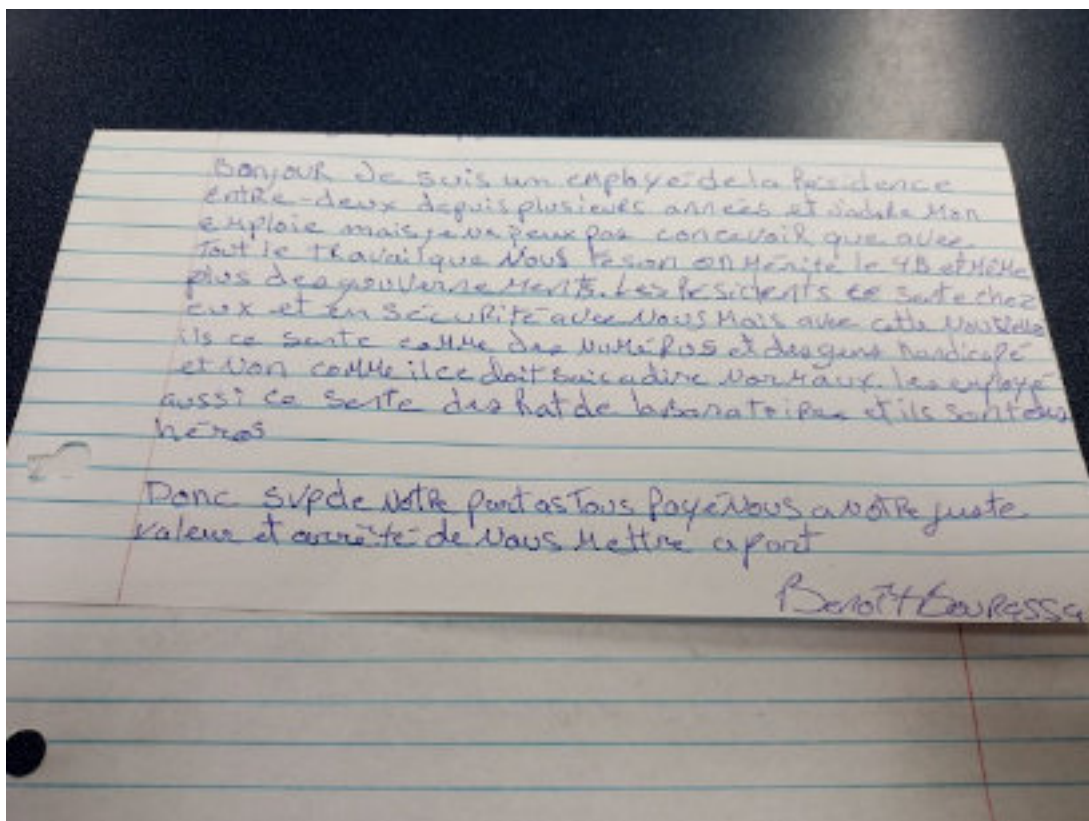 Bonjour Je suis un employé de la Résidence
entre-deux depuis plusieurs années et j'adore mon
emploie mais je ne peux pas concevoir que avec
tout le travail que nous feson on mérite le 4$ et même
plus des gouvernements. Les Résidents ce sente chez
eux et en sécurité avec nous mais avec cette nouvelle
ils ce sente comme des numéros et des gens handicapé
et non comme il ce doit normaux. les employé
aussi ce sente des Rat de laboratoire et ils sont des
héros
Donc svp de notre part as Tous payé nous a notre juste
valeur et arrêté de nous mettre apart
Benoît Bourassa